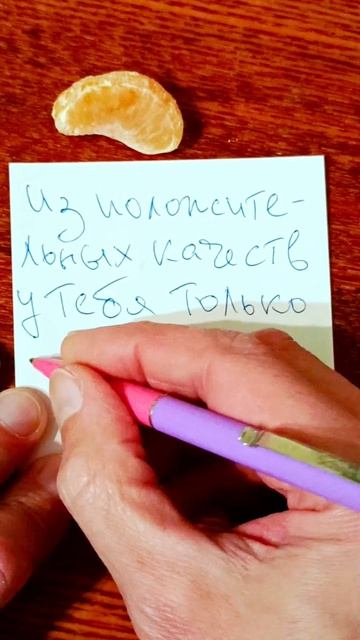 Из положите-
льных качеств
у тебя только